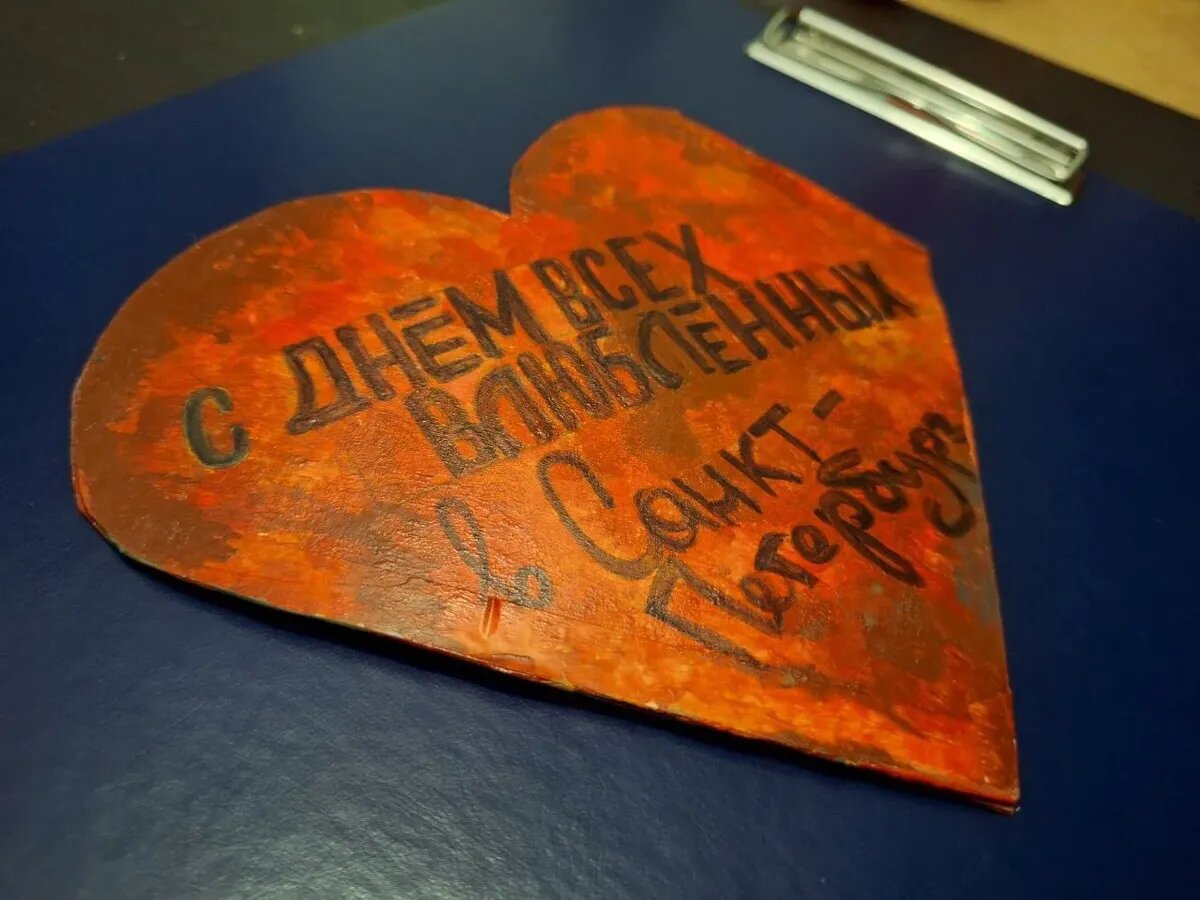 С ДНЁМ ВСЕХ
ВЛЮБЛЁННЫХ
в Санкт-
Петербург